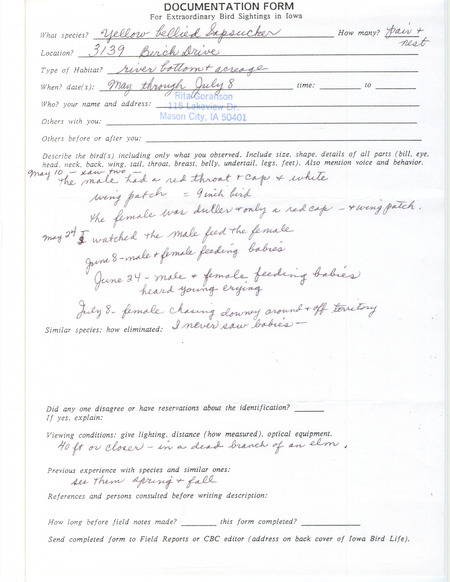 DOCUMENTATION FORM
For Extraordinary Bird Sightings in Iowa
What species? Yellow bellied Sapsucker How many? pair +
nest
Location? 3139 Birch Drive
Type of Habitat? river bottom + acreage
When? date(s): May through July 8 time: to
Rita Goranson
Who? your name and address:
115 Lakeview Dr.
Mason City, IA 50401
Others with you:
Others before or after you:
Describe the bird(s) including only what you observed. Include size, shape, details of all parts (bill, eye,
head, neck, back, wing, tail, throat, breast, belly, undertail, legs, feet). Also mention voice and behavior.
May 10 - saw two -
the male had a red throat + cap + white
wing patch = 9 inch bird
the female was duller + only a red cap - + wing patch.
May 24 I watched the male feed the female
June 8 - male + female feeding babies
June 24 - male + female feeding babies
heard young crying
July 8 - female chasing downey around + off territory
Similar species; how eliminated: I never saw babies -
Did any one disagree or have reservations about the identification?
If yes, explain:
Viewing conditions: give lighting, distance (how measured), optical equipment.
40 ft or closer - in a dead branch of an elm.
Previous experience with species and similar ones:
see them spring + fall
References and persons consulted before writing description:
How long before field notes made? this form completed?
Send completed form to Field Reports or CBC editor (address on back cover of Iowa Bird Life).